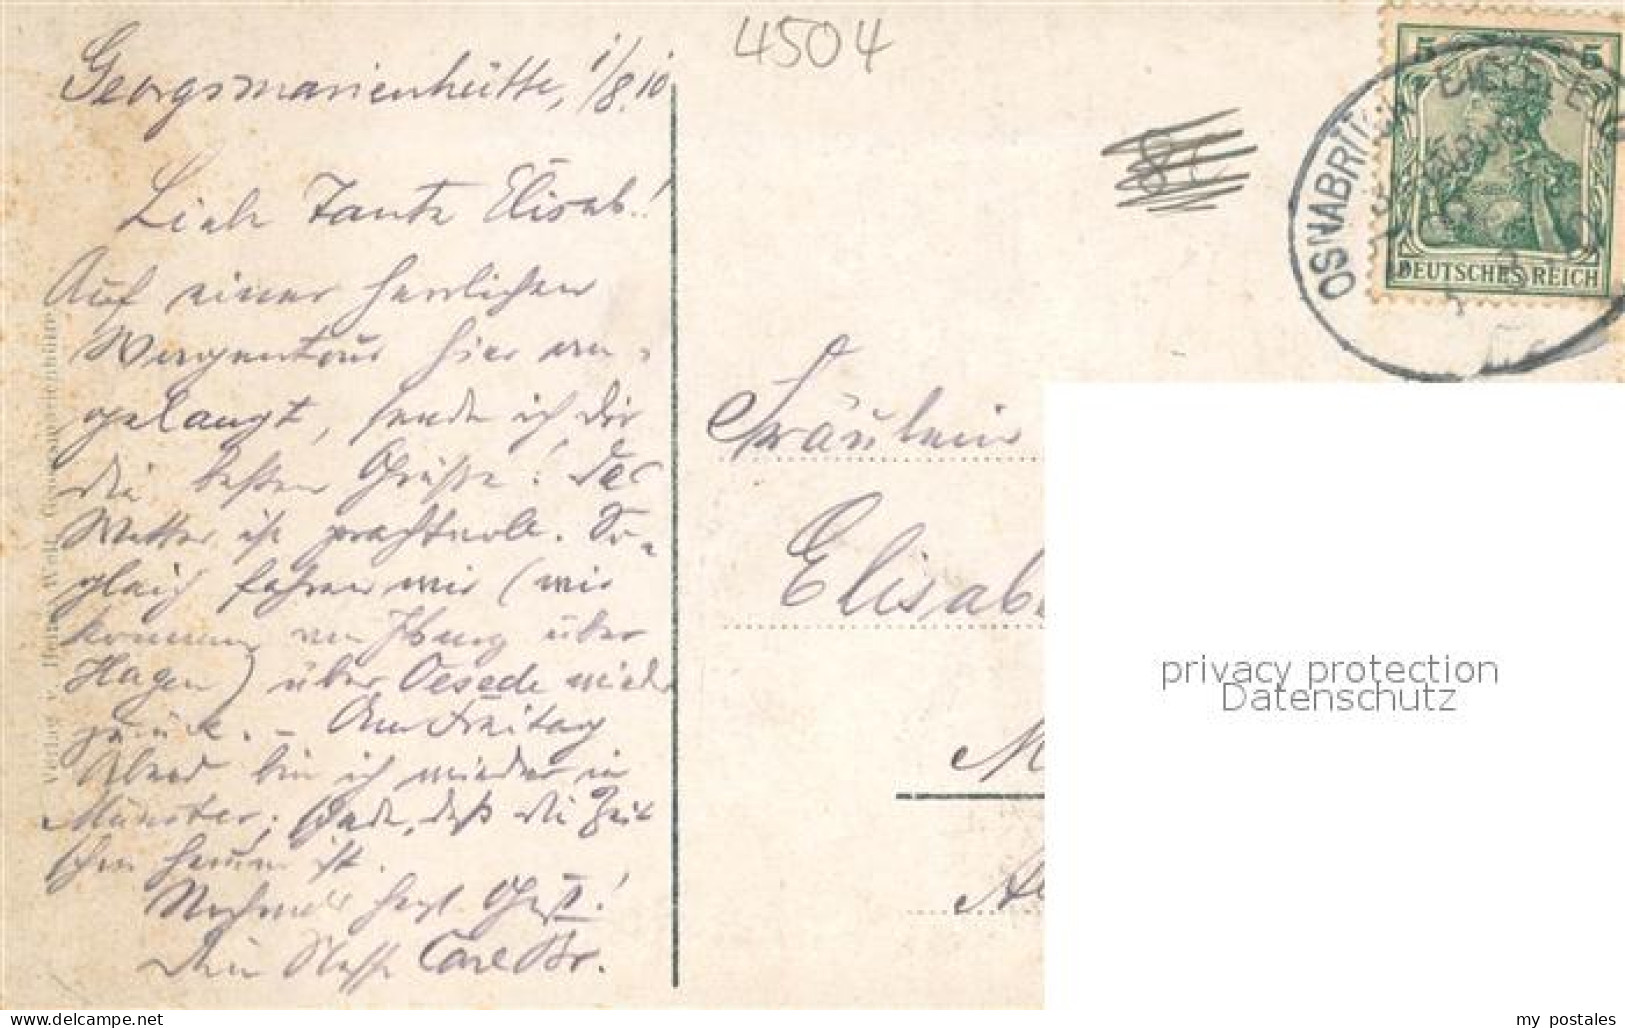 4504
Georgsmarienhütte, 1/8.10
Liebe Tante Elisab.!
Auf einer herrlichen
Wagentour hier an-
gelangt, sende ich Dir
die besten Grüße! Das
Wetter ist prachtvoll. So-
gleich fahren wir (wir
kommen von Iburg über
Hagen) über Oesede wieder
zurück. - Am Freitag
Abend bin ich wieder in
Münster; schade, daß die Zeit
schon herum ist.
Nochmals herzl. Gruß!
Dein Neffe Carl Br.
Verlag v. Wolf, Georgsmarienhütte
5 5
DEUTSCHES REICH
OSNABRÜCK
Fräulein
Elisab
M
privacy protection
Datenschutz
www.delcampe.net
my_postales